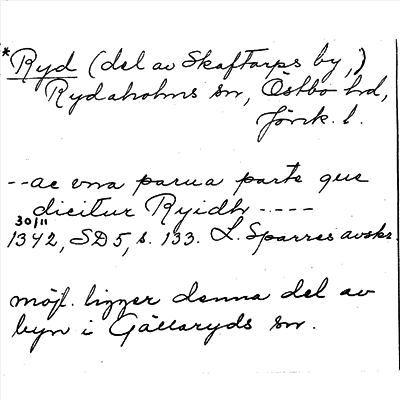 *Ryd (del av Skaftarps by,)
Rydaholms sn, Östbo hd,
Jönk. l.
--ac vna parua parte que
dicitur Ryidh-----
30/11
1342, SD5, s. 133. L. Sparres avskr.
möjl. ligger denna del av
byn i Gällaryds sn.